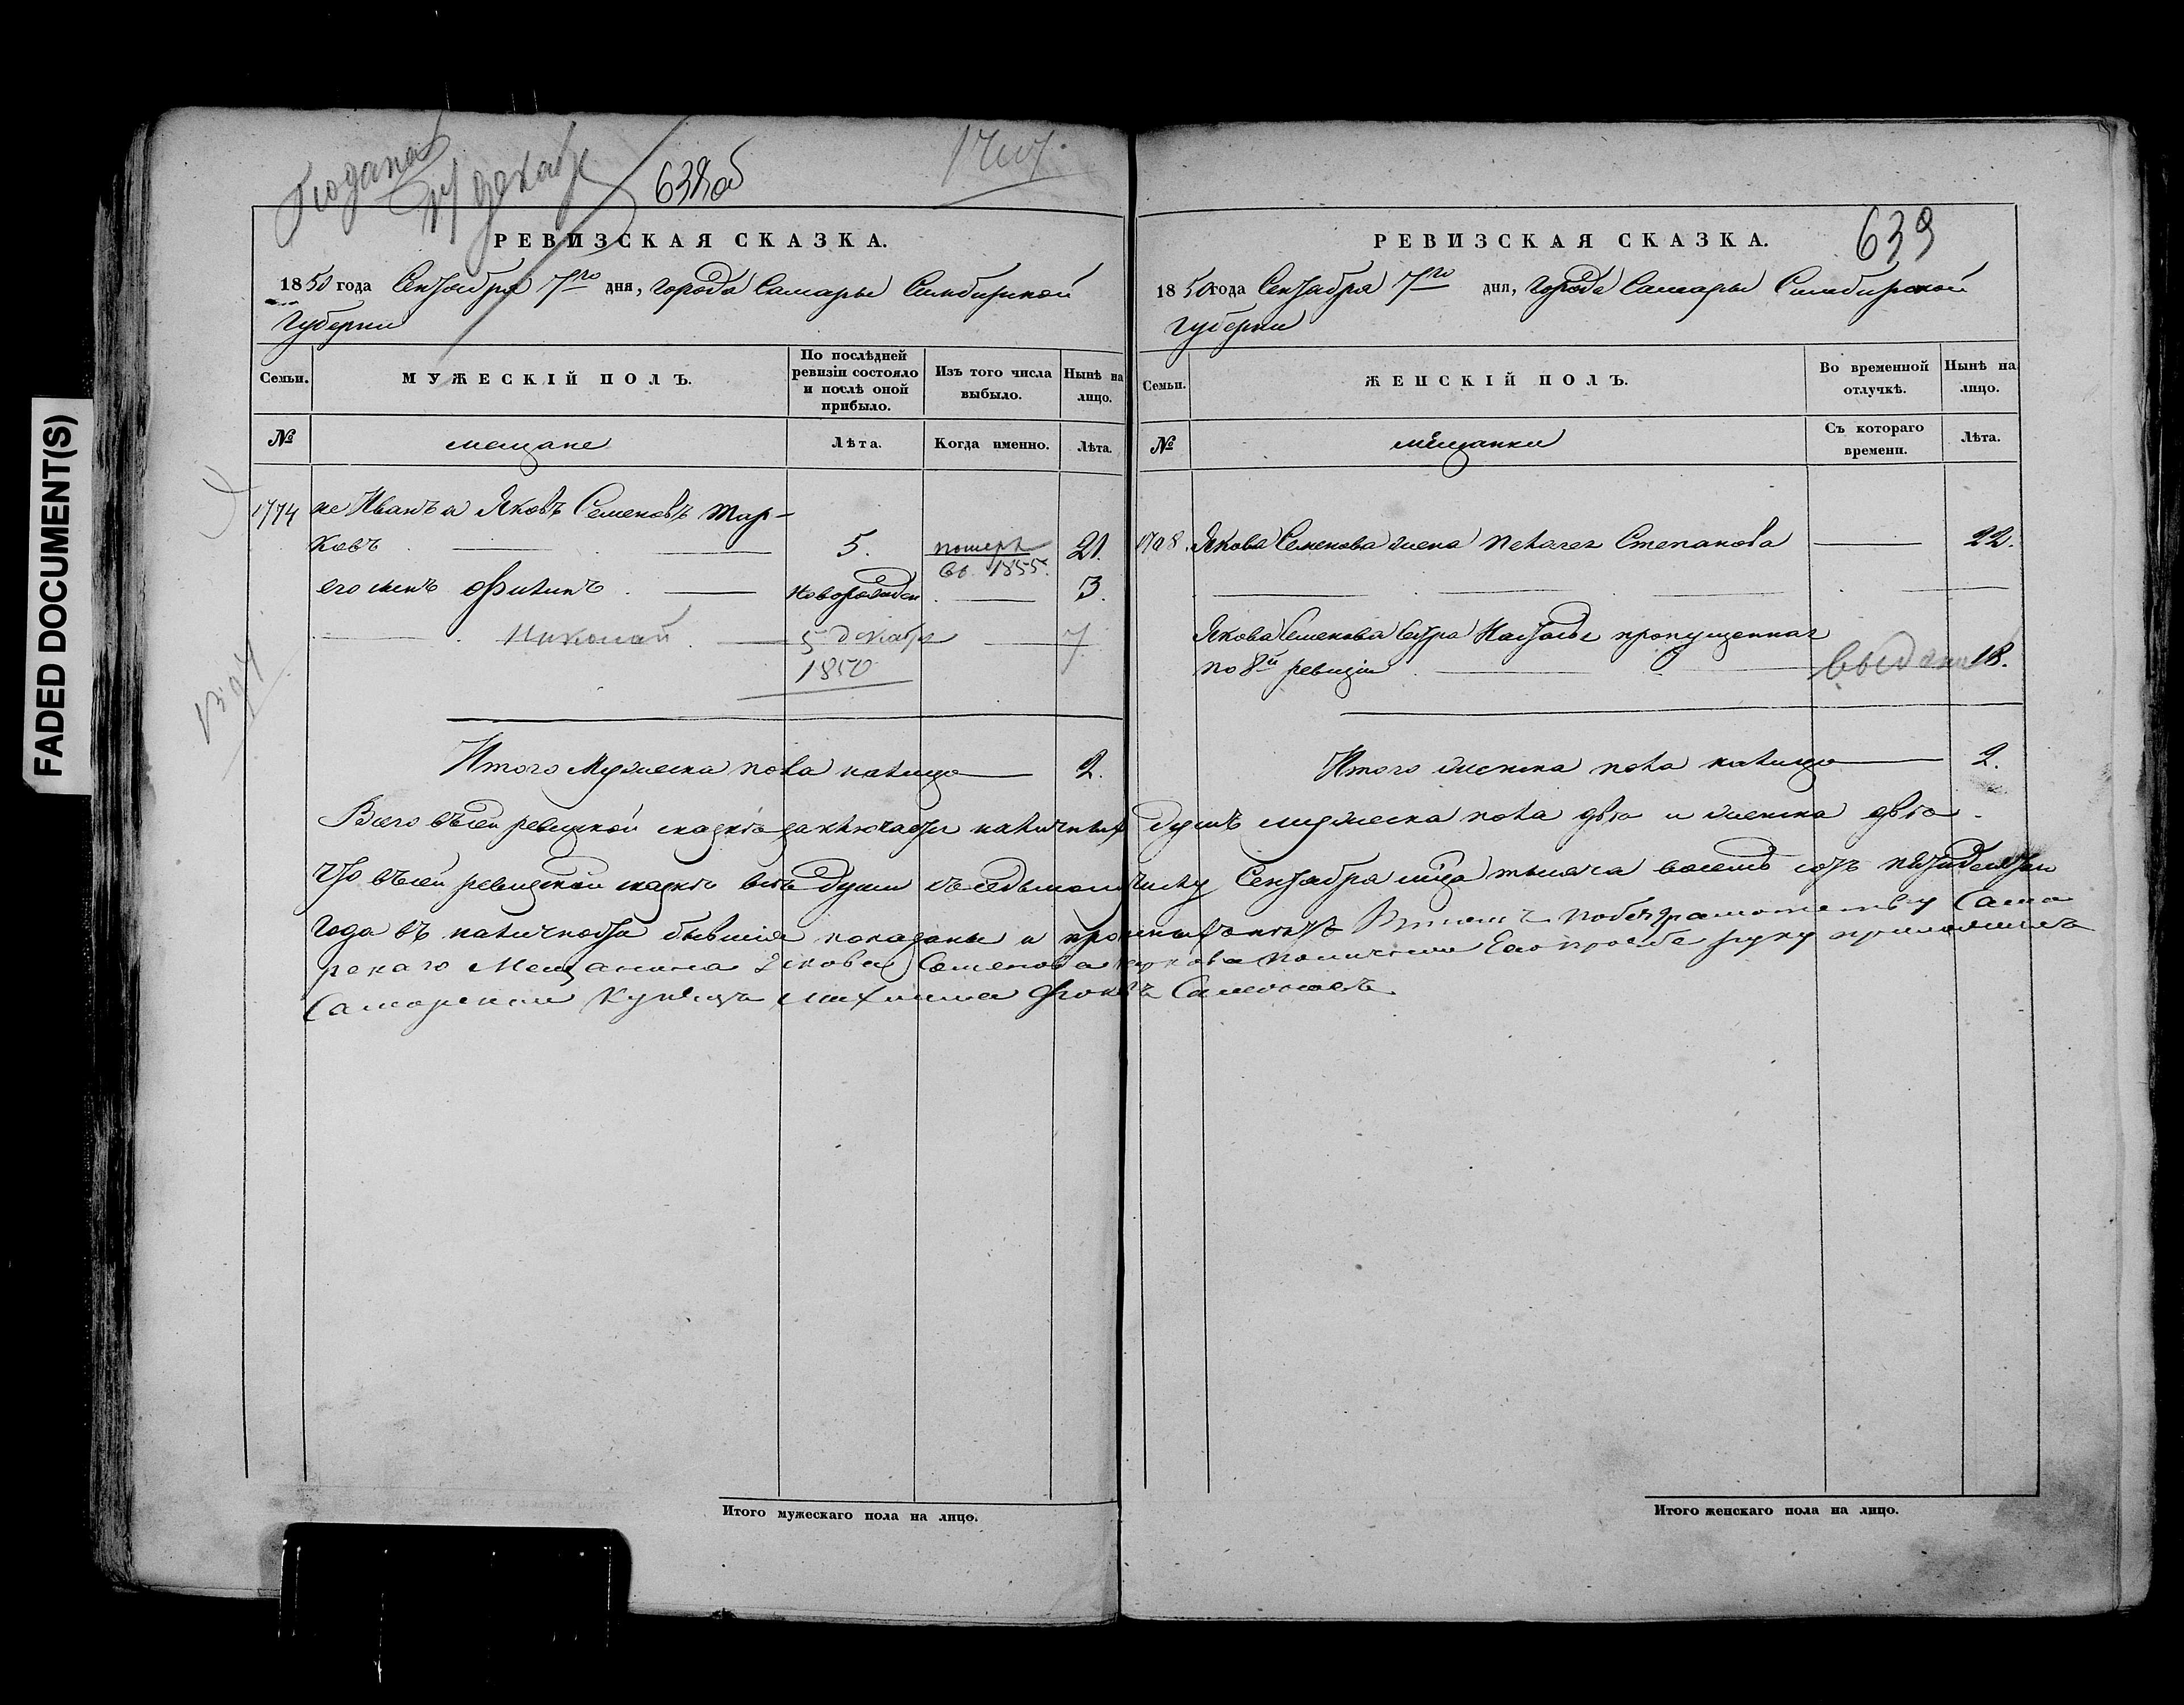 FADED DOCUMENT(S)
Подана
17 декабр
638об
РЕВИЗСКАЯ СКАЗКА.
1850 года Сентября 7го дня, города Самары Симбирской
Губернии
Семьи.
МУЖЕСКІЙ ПОЛЪ.
По послѣдней
ревизіи состояло
и послѣ оной
прибыло.
Изъ того числа
выбыло.
Нынѣ на
лицо.
№
мещане
Лѣта.
Когда именно.
Лѣта.
1774 не Иванъ а Яковъ Семеновъ Мар-
ковъ 5. помер 21.
во 1855.
его сынъ Филипъ новорожден 3.
Николай 5 декабр 7
1850
Итого мужеска пола налицо 2.
639
РЕВИЗСКАЯ СКАЗКА.
1850 года Сентября 7го дня, города Самары Симбирской
губернии
Семьи.
ЖЕНСКІЙ ПОЛЪ.
Во временной
отлучкѣ.
Нынѣ на
лицо.
№
мещанки
Съ котораго
времени.
Лѣта.
Якова Семенова жена Пелагея Степанова 22.
Якова Семенова сестра Наталья пропущенная
по 8й ревизіи выдана 18.
Итого женска пола налицо 2.
Всего въ сей ревизской сказкѣ заключается наличныхъ душъ мужеска пола двѣ и женска двѣ.
Что въ сей ревизской сказкѣ всѣ души къ седьмому числу Сентября мца тысяча восемь сотъ пятидесятаго
года въ наличности бывшія показаны и Въ томъ по безграмотству Сама
рскаго Мещанина Якова Семенова Маркова по личной Его прозбе руку приложилъ
Самарской Купецъ
Итого мужескаго пола на лицо.
Итого женскаго пола на лицо.